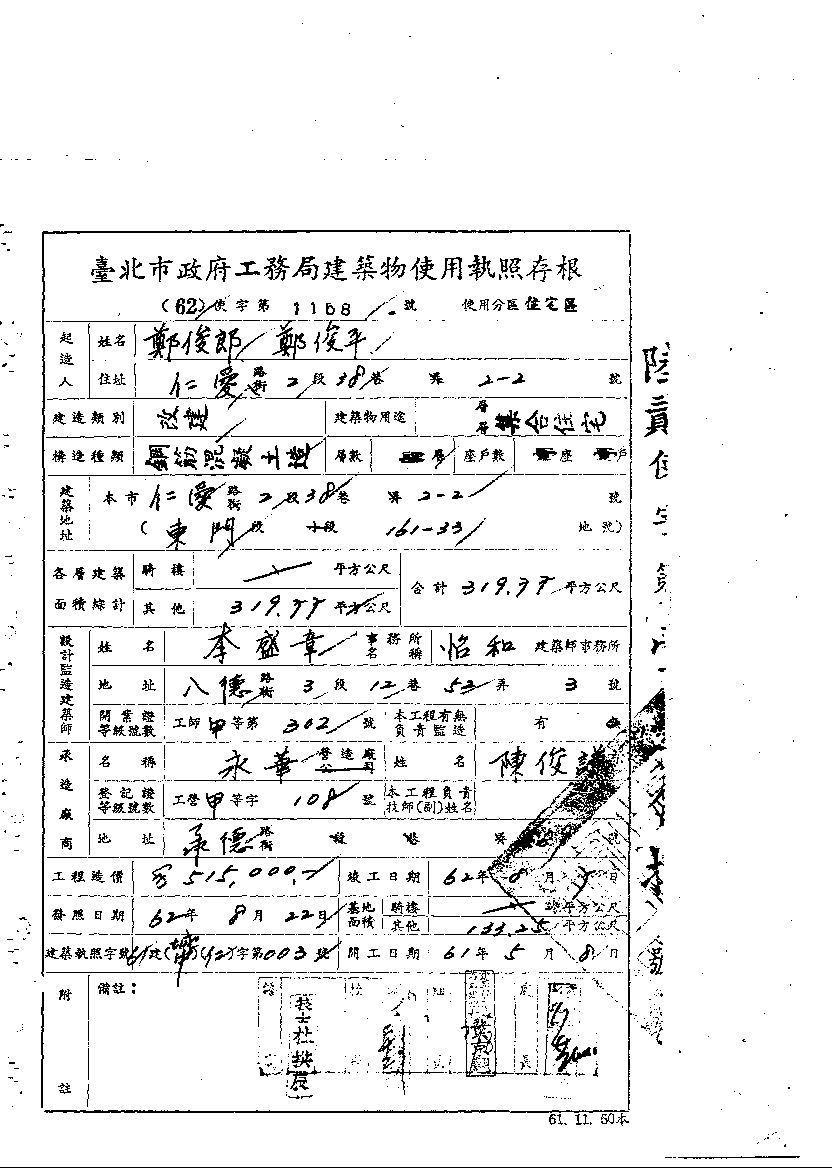 臺北市政府工務局建築物使用執照存根
(62)使字第 1168 號 使用分区 住宅區
起造人 姓名 鄭俊郎 鄭俊平
住址 仁愛路街 2段38巷 弄2-2 號
建造類別 改建 建築物用途 層層 集合住宅
構造種類 鋼筋混凝土造 層數 層 座戶數 座 戶
建築地址 本市 仁愛路街 2段38巷 弄2-2 號
(東門段 小段 161-33 地號)
各層建築面積綜計 騎樓 平方公尺 合計 319.77 平方公尺
其他 319.77 平方公尺
設計監造建築師 姓名 李盛章 事務所名稱 怡和 建築師事務所
地址 八德路街 3段12巷53弄3號
開業證等級號數 工師甲等第302號 本工程有無負責監造 有
承造廠商 名稱 永華 營造廠公司 姓名 陳俊謀
登記證等級號數 工營甲等字108號 本工程負責技師(副)姓名
地址 承德路街 段 巷 弄 號
工程造價 515,000.- 竣工日期 62年8月 日
發照日期 62年8月22日 基地面積 騎樓 平方公尺
其他 133.25 平方公尺
建築執照字號 61建( )(42)字第003號 開工日期 61年5月8日
附註 備註:
技士杜拱辰
61. 11. 50本